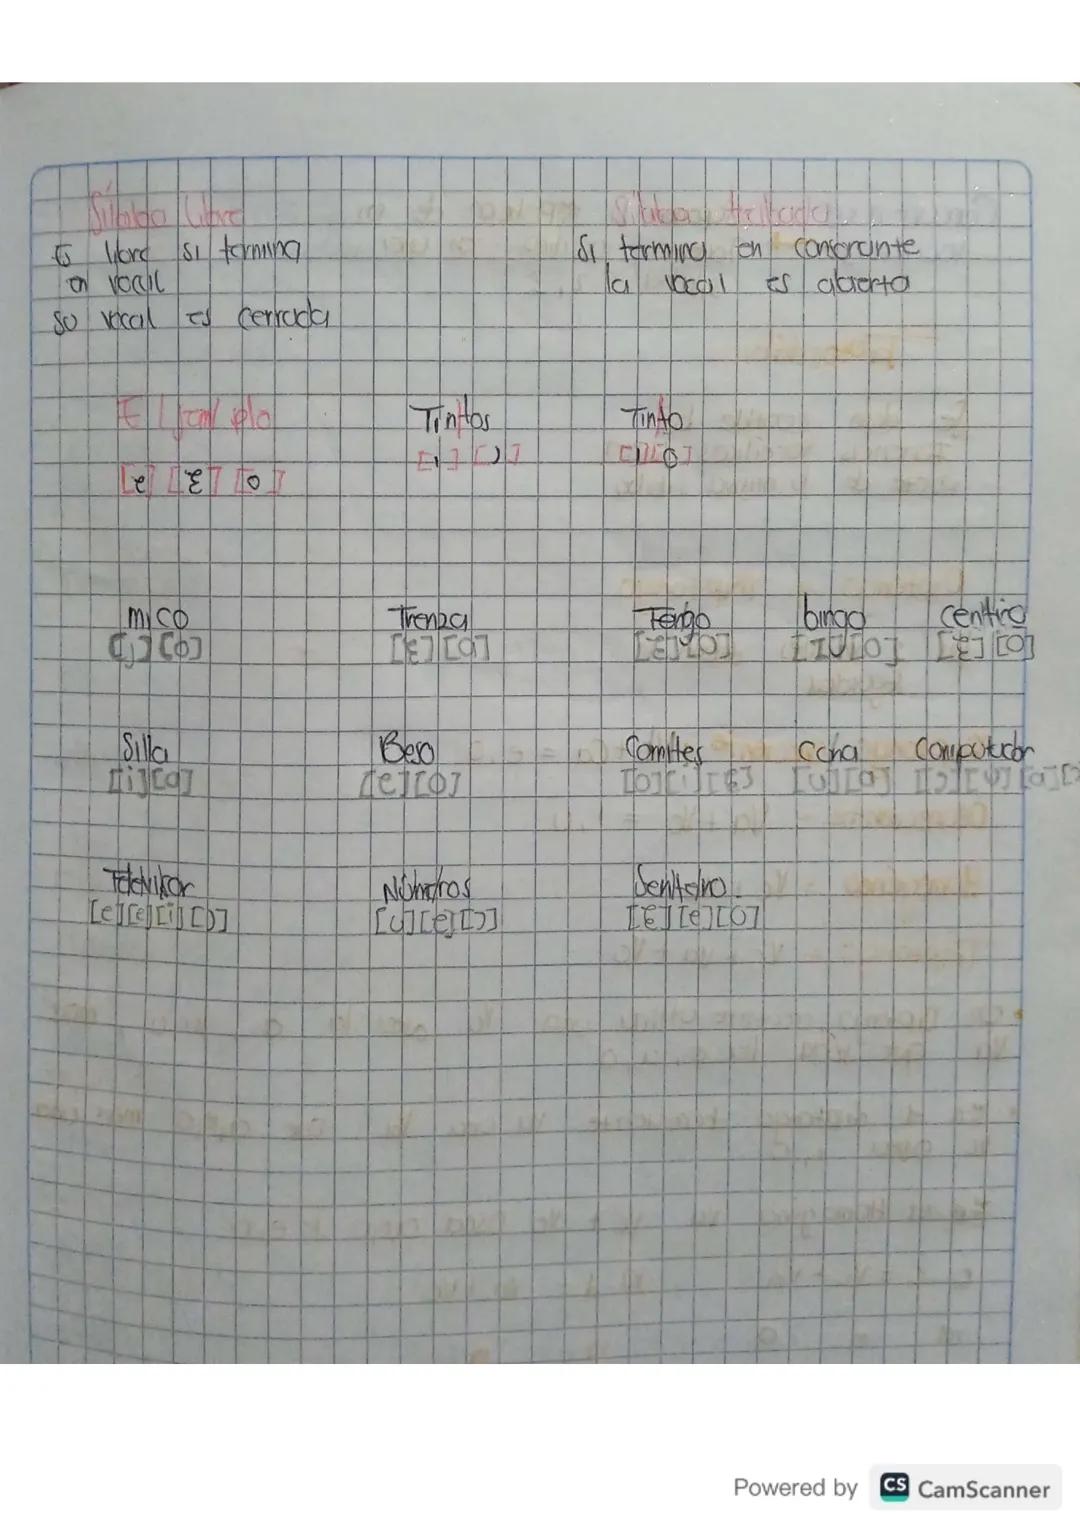 Sílaba libre
Es libre si termina
en vocal
su vocal es cerrada
Sílaba trabada
Si termina en consonante
la vocal es abierta
E/jem/plo
[e] [ɛ] [o]
Tin/tos
[ɪ] [ɔ]
Tin/to
[ɪ][o]
mico
[i] [o]
Trenza
[ɛ] [a]
Tengo
[ɛ] [o]
bingo
[ɪ] [o]
centro
[ɛ] [o]
Silla
[i] [a]
Beso
[e] [o]
Comites
[o][i][ɛ]
cuna
[u] [a]
Computador
[ɔ] [u] [a]
Televisor
[e][e][i][ɔ]
Números
[u][e][ɔ]
Sentero
[ɛ][e][o]
Powered by CS CamScanner